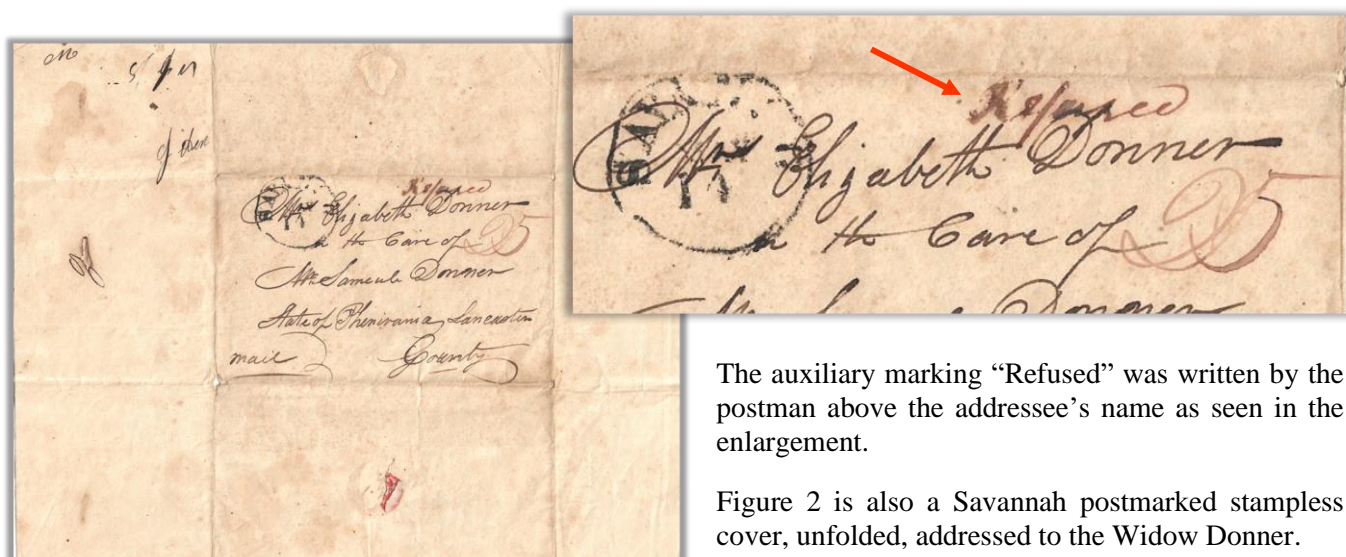 Refused
Mrs Elizabeth Donner
to the Care of 25
Mr Samule Donner
State of Phenivania, Lancaster
mail County
Refused
Mrs Elizabeth Donner
to the Care of 25
The auxiliary marking “Refused” was written by the
postman above the addressee’s name as seen in the
enlargement.
Figure 2 is also a Savannah postmarked stampless
cover, unfolded, addressed to the Widow Donner.